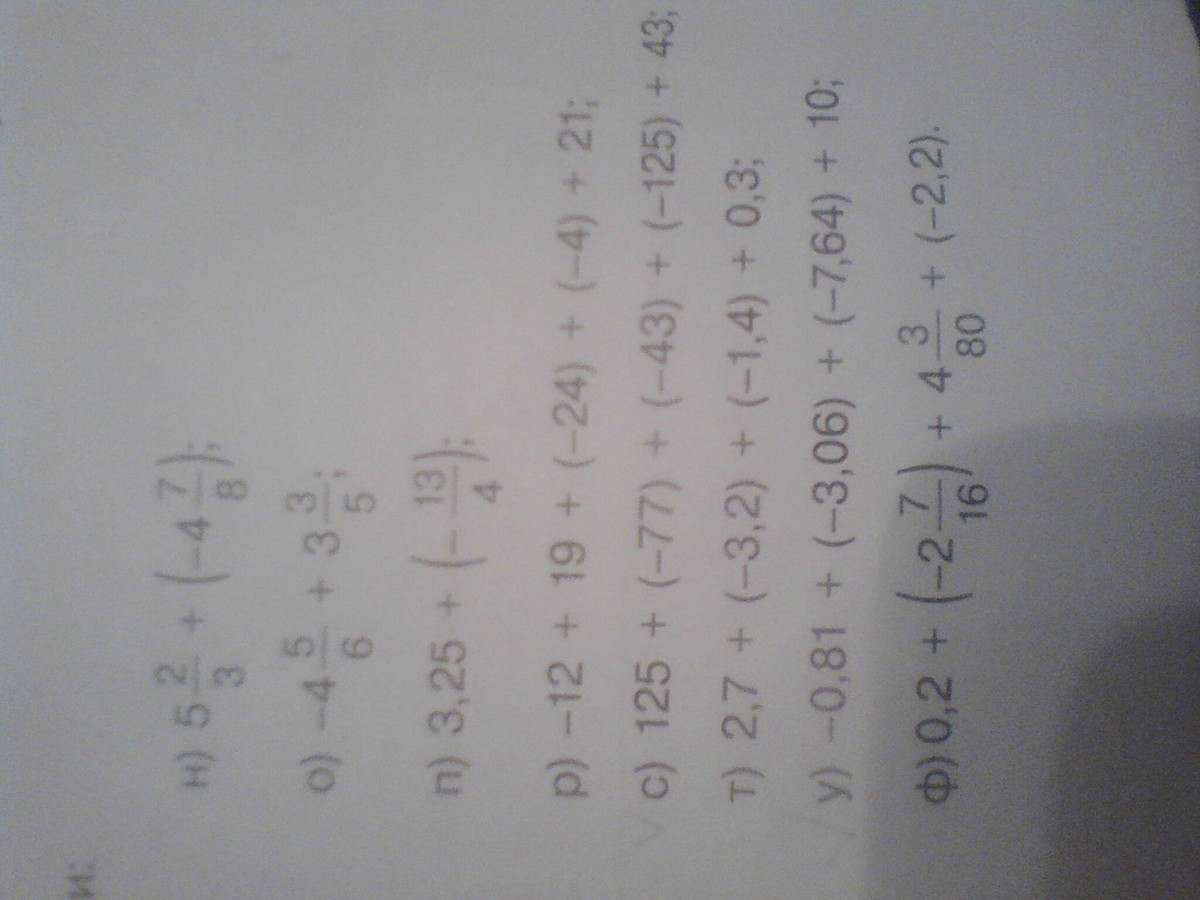 и:
н) 5 2/3 + (−4 7/8);
о) −4 5/6 + 3 3/5;
п) 3,25 + (−13/4);
р) −12 + 19 + (−24) + (−4) + 21;
с) 125 + (−77) + (−43) + (−125) + 43;
т) 2,7 + (−3,2) + (−1,4) + 0,3;
у) −0,81 + (−3,06) + (−7,64) + 10;
ф) 0,2 + (−2 7/16) + 4 3/80 + (−2,2).